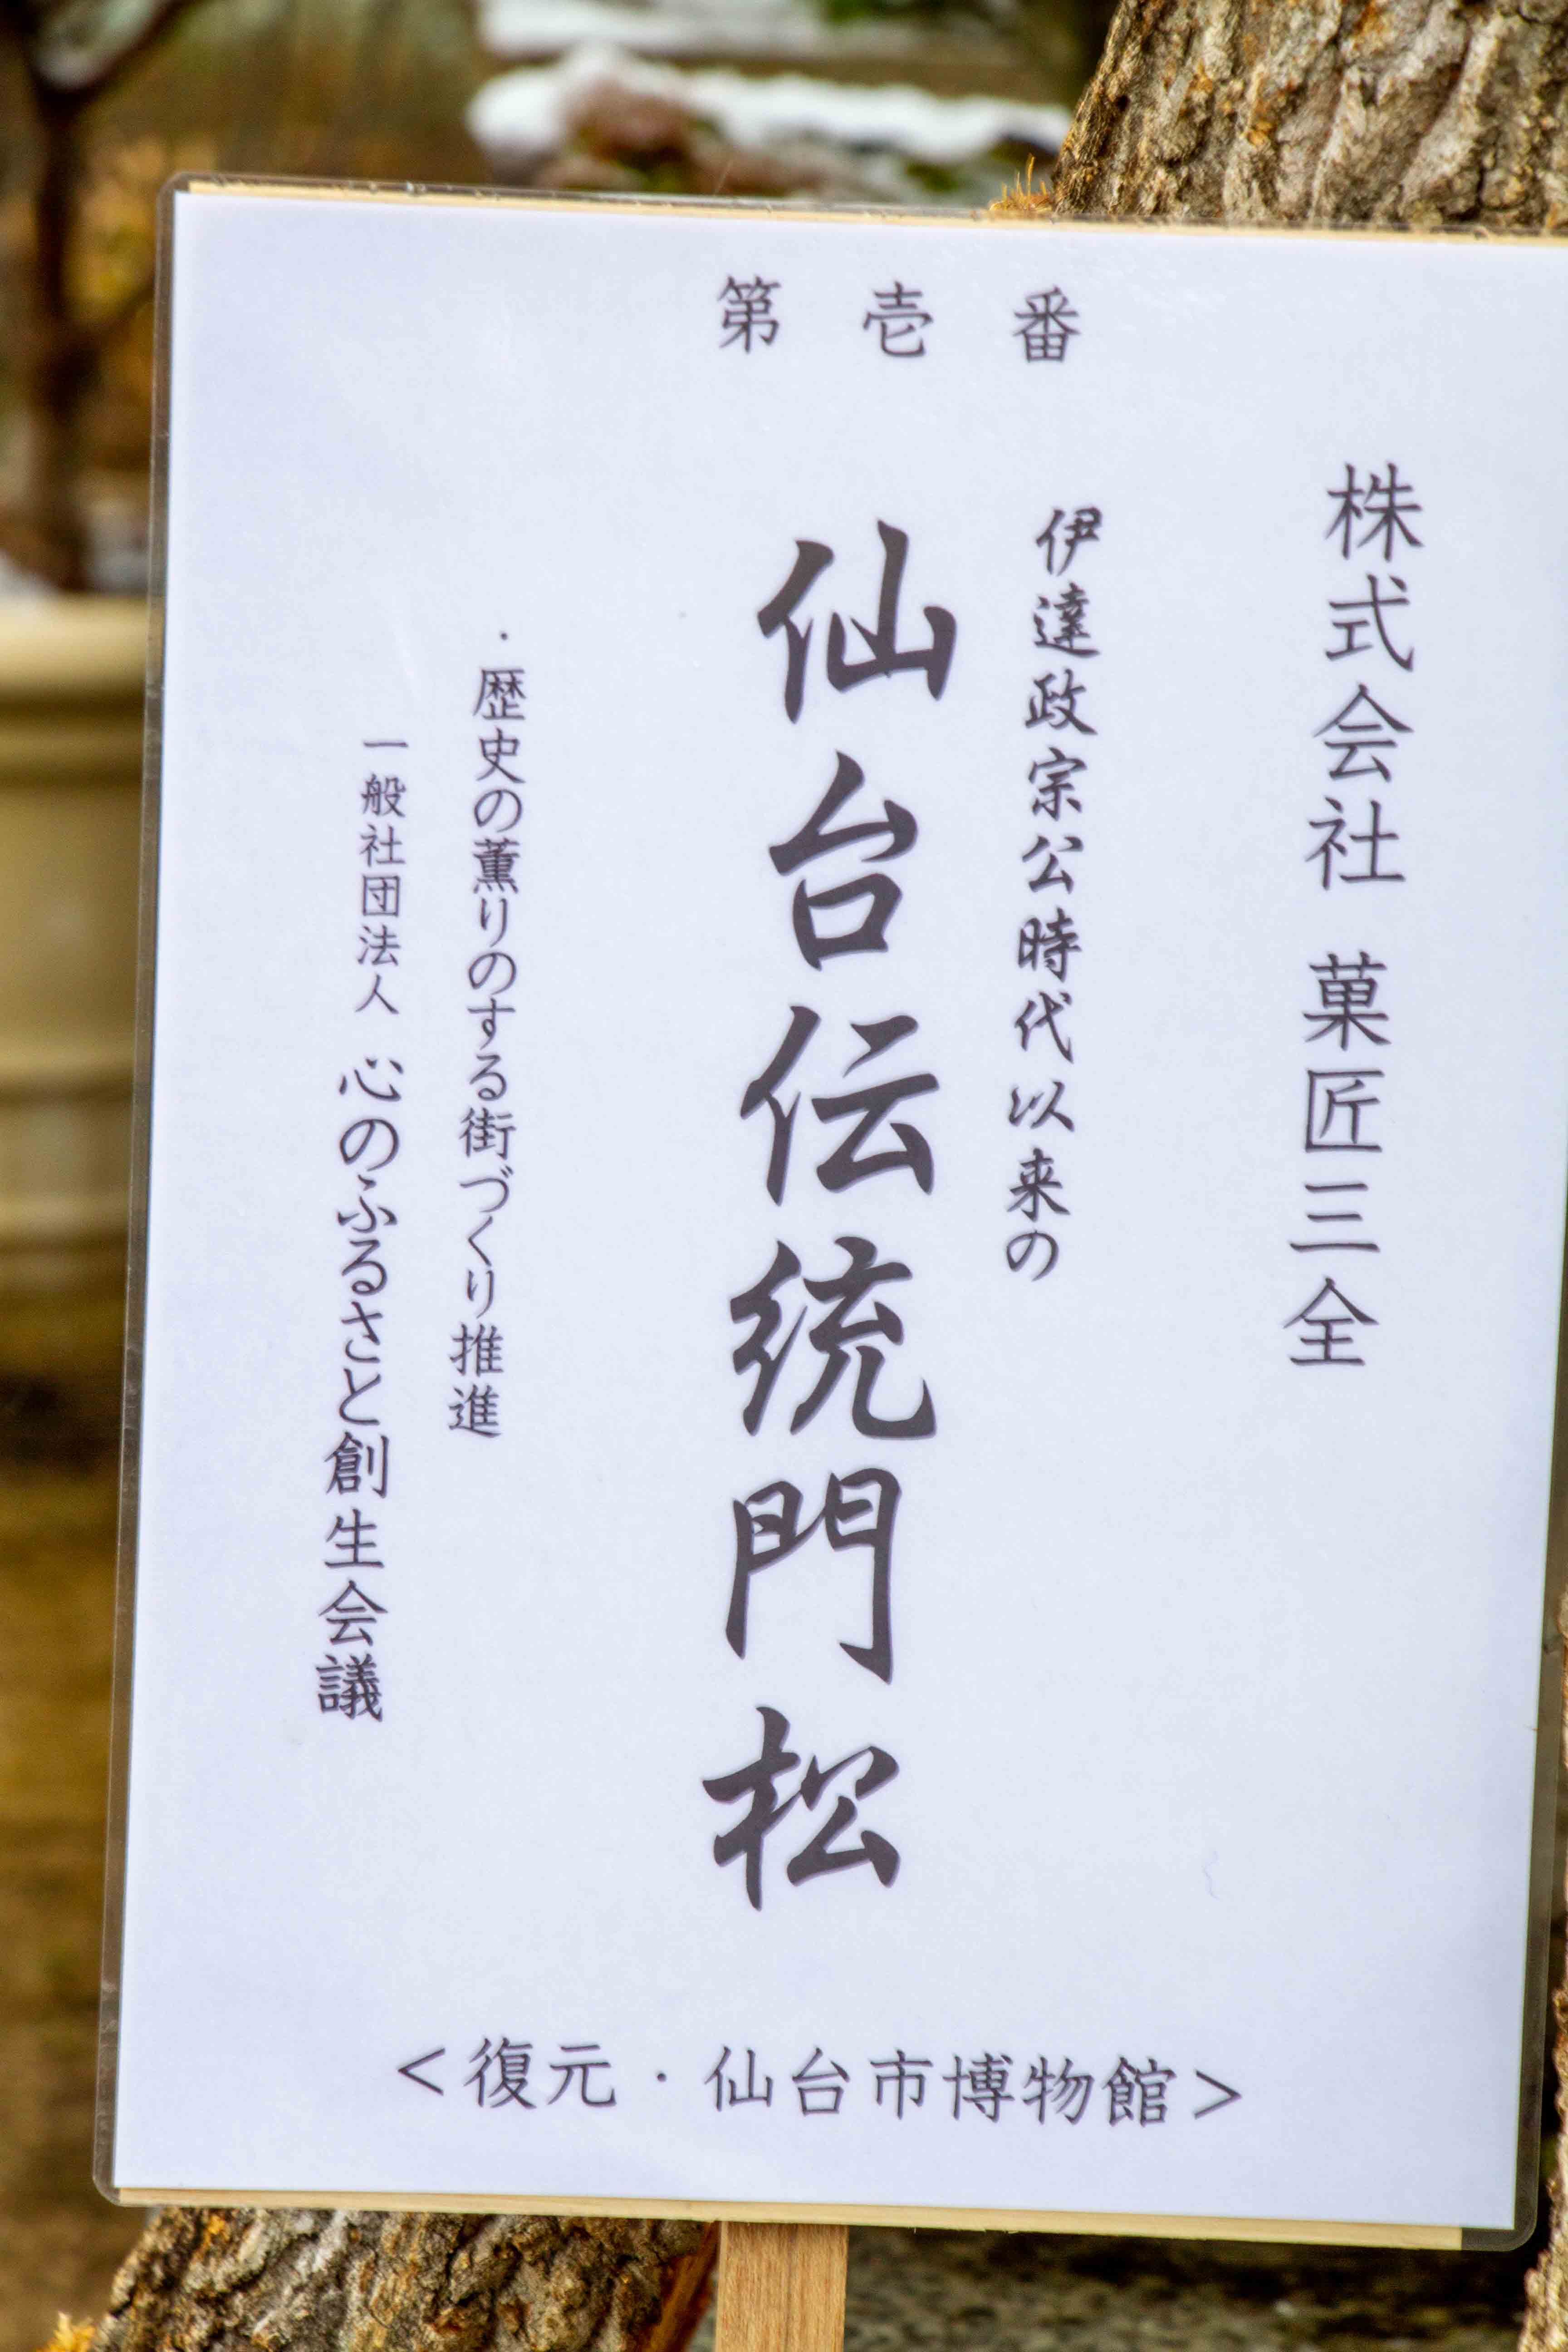 第壱番
株式会社 菓匠三全
伊達政宗公時代以来の
仙台伝統門松
・歴史の薫りのする街づくり推進
一般社団法人 心のふるさと創生会議
<復元・仙台市博物館>